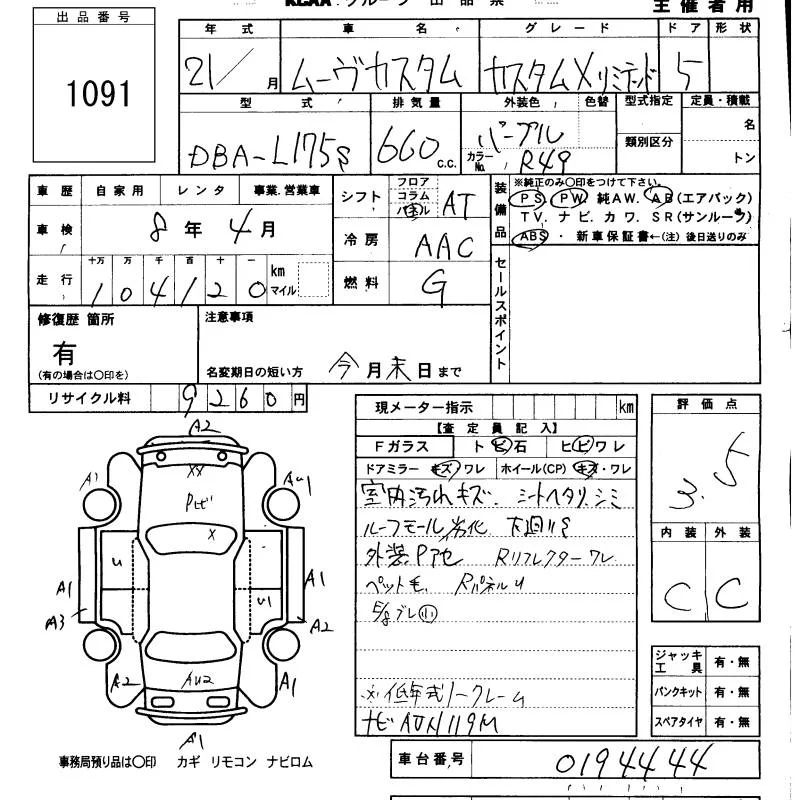 KCAA グループ 出品票
主催者用
出品番号
1091
年式 車名 グレード ドア 形状
21/ 月 ムーヴカスタム カスタムXリミテッド 5
型式 排気量 外装色 色替 型式指定 定員・積載
DBA-L175S 660 c.c. パープル カラーNo. R49 類別区分 名
トン
車歴 自家用 レンタ 事業.営業車
車検 8年4月
走行 十万 万 千 百 十 一 km マイル
1 0 4 1 2 0
シフト フロア コラム パネル AT
冷房 AAC
燃料 G
装備品
※純正のみ○印をつけて下さい。
PS. PW. 純AW. AB(エアバック)
TV. ナビ. カワ. SR(サンルーフ)
ABS ・ 新車保証書←(注) 後日送りのみ
セールスポイント
修復歴 箇所
有
(有の場合は○印を)
注意事項
名変期日の短い方 今月末日まで
リサイクル料 9260円
現メーター指示 km
【査定員記入】
Fガラス ト ビ 石 ヒビワレ
ドアミラー キズ・ワレ ホイール(CP) キズ・ワレ
室内汚れキズ. シートヘタリ.シミ
ルーフモール劣化 下廻りS
外装Pアセ Rリフレクターワレ
ペット毛 RパネルU
E/gブレ小
※低年式ノークレーム
ナビAON119M
評価点
3.5
内装 外装
C C
ジャッキ工具 有・無
パンクキット 有・無
スペアタイヤ 有・無
A2
XX
A1
Pビ
AU1
X
U
A1
A1
U1
A3
A2
A2
AU2
A1
A1
事務局預り品は○印 カギ リモコン ナビロム
車台番号 0194444